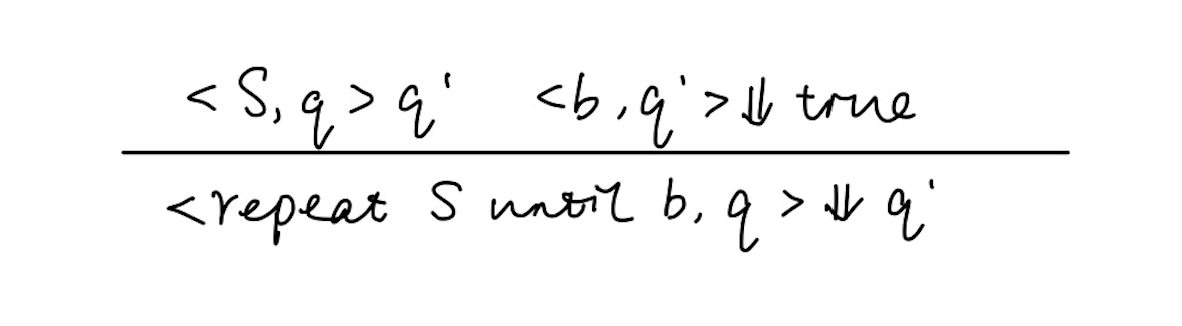 <S, q> q' <b, q'> ⇓ true
<repeat S until b, q> ⇓ q'